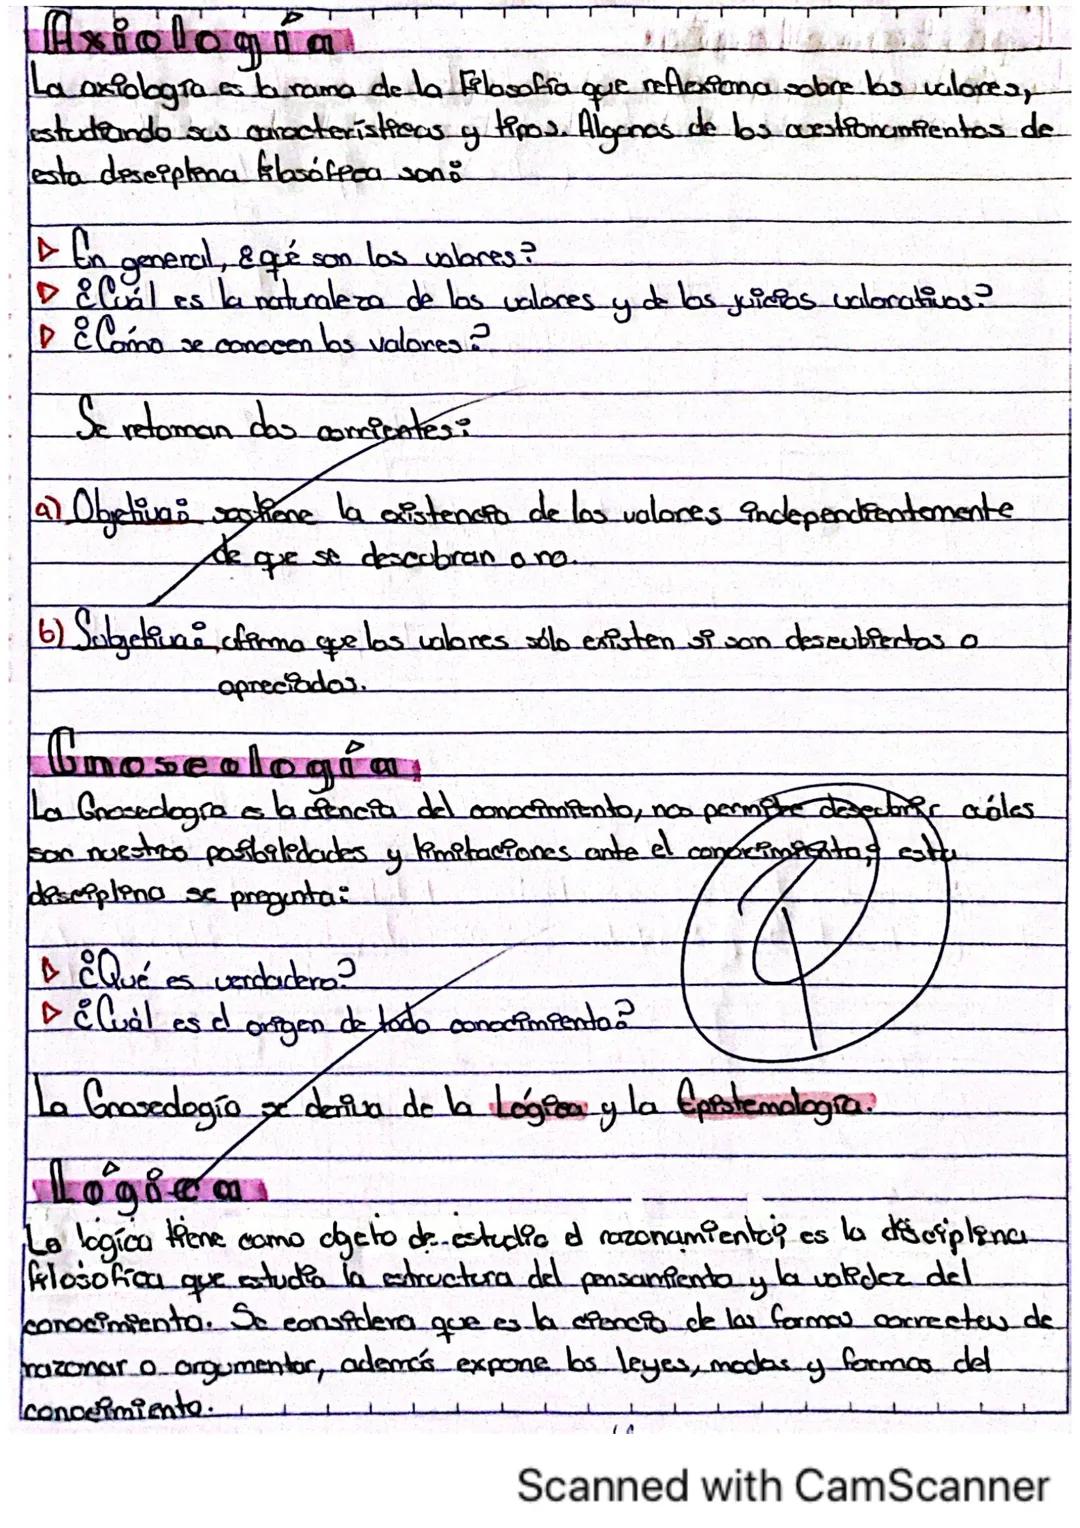 Axiología
La axiología es la rama de la Filosofía que reflexiona sobre los valores,
estudiando sus características y tipos. Algunos de los cuestionamientos de
esta disciplina filosófica son:
En general, ¿qué son los valores?
¿Cuál es la naturaleza de los valores y de los juicios valorativos?
¿Cómo se conocen los valores?
Se retoman dos corrientes:
a) Objetiva: sostiene la existencia de los valores independientemente
de que se descubran o no.
b) Subjetiva: afirma que los valores sólo existen si son descubiertos o
apreciados.
Gnoseología
La Gnoseología es la ciencia del conocimiento, nos permite descubrir cuáles
son nuestras posibilidades y limitaciones ante el conocimiento; esta
disciplina se pregunta:
¿Qué es verdadero?
¿Cuál es el origen de todo conocimiento?
La Gnoseología se deriva de la Lógica y la Epistemología.
Lógica
La lógica tiene como objeto de estudio el razonamiento; es la disciplina
filosófica que estudia la estructura del pensamiento y la validez del
conocimiento. Se considera que es la ciencia de las formas correctas de
razonar o argumentar, además expone las leyes, modos y formas del
conocimiento.
Scanned with CamScanner